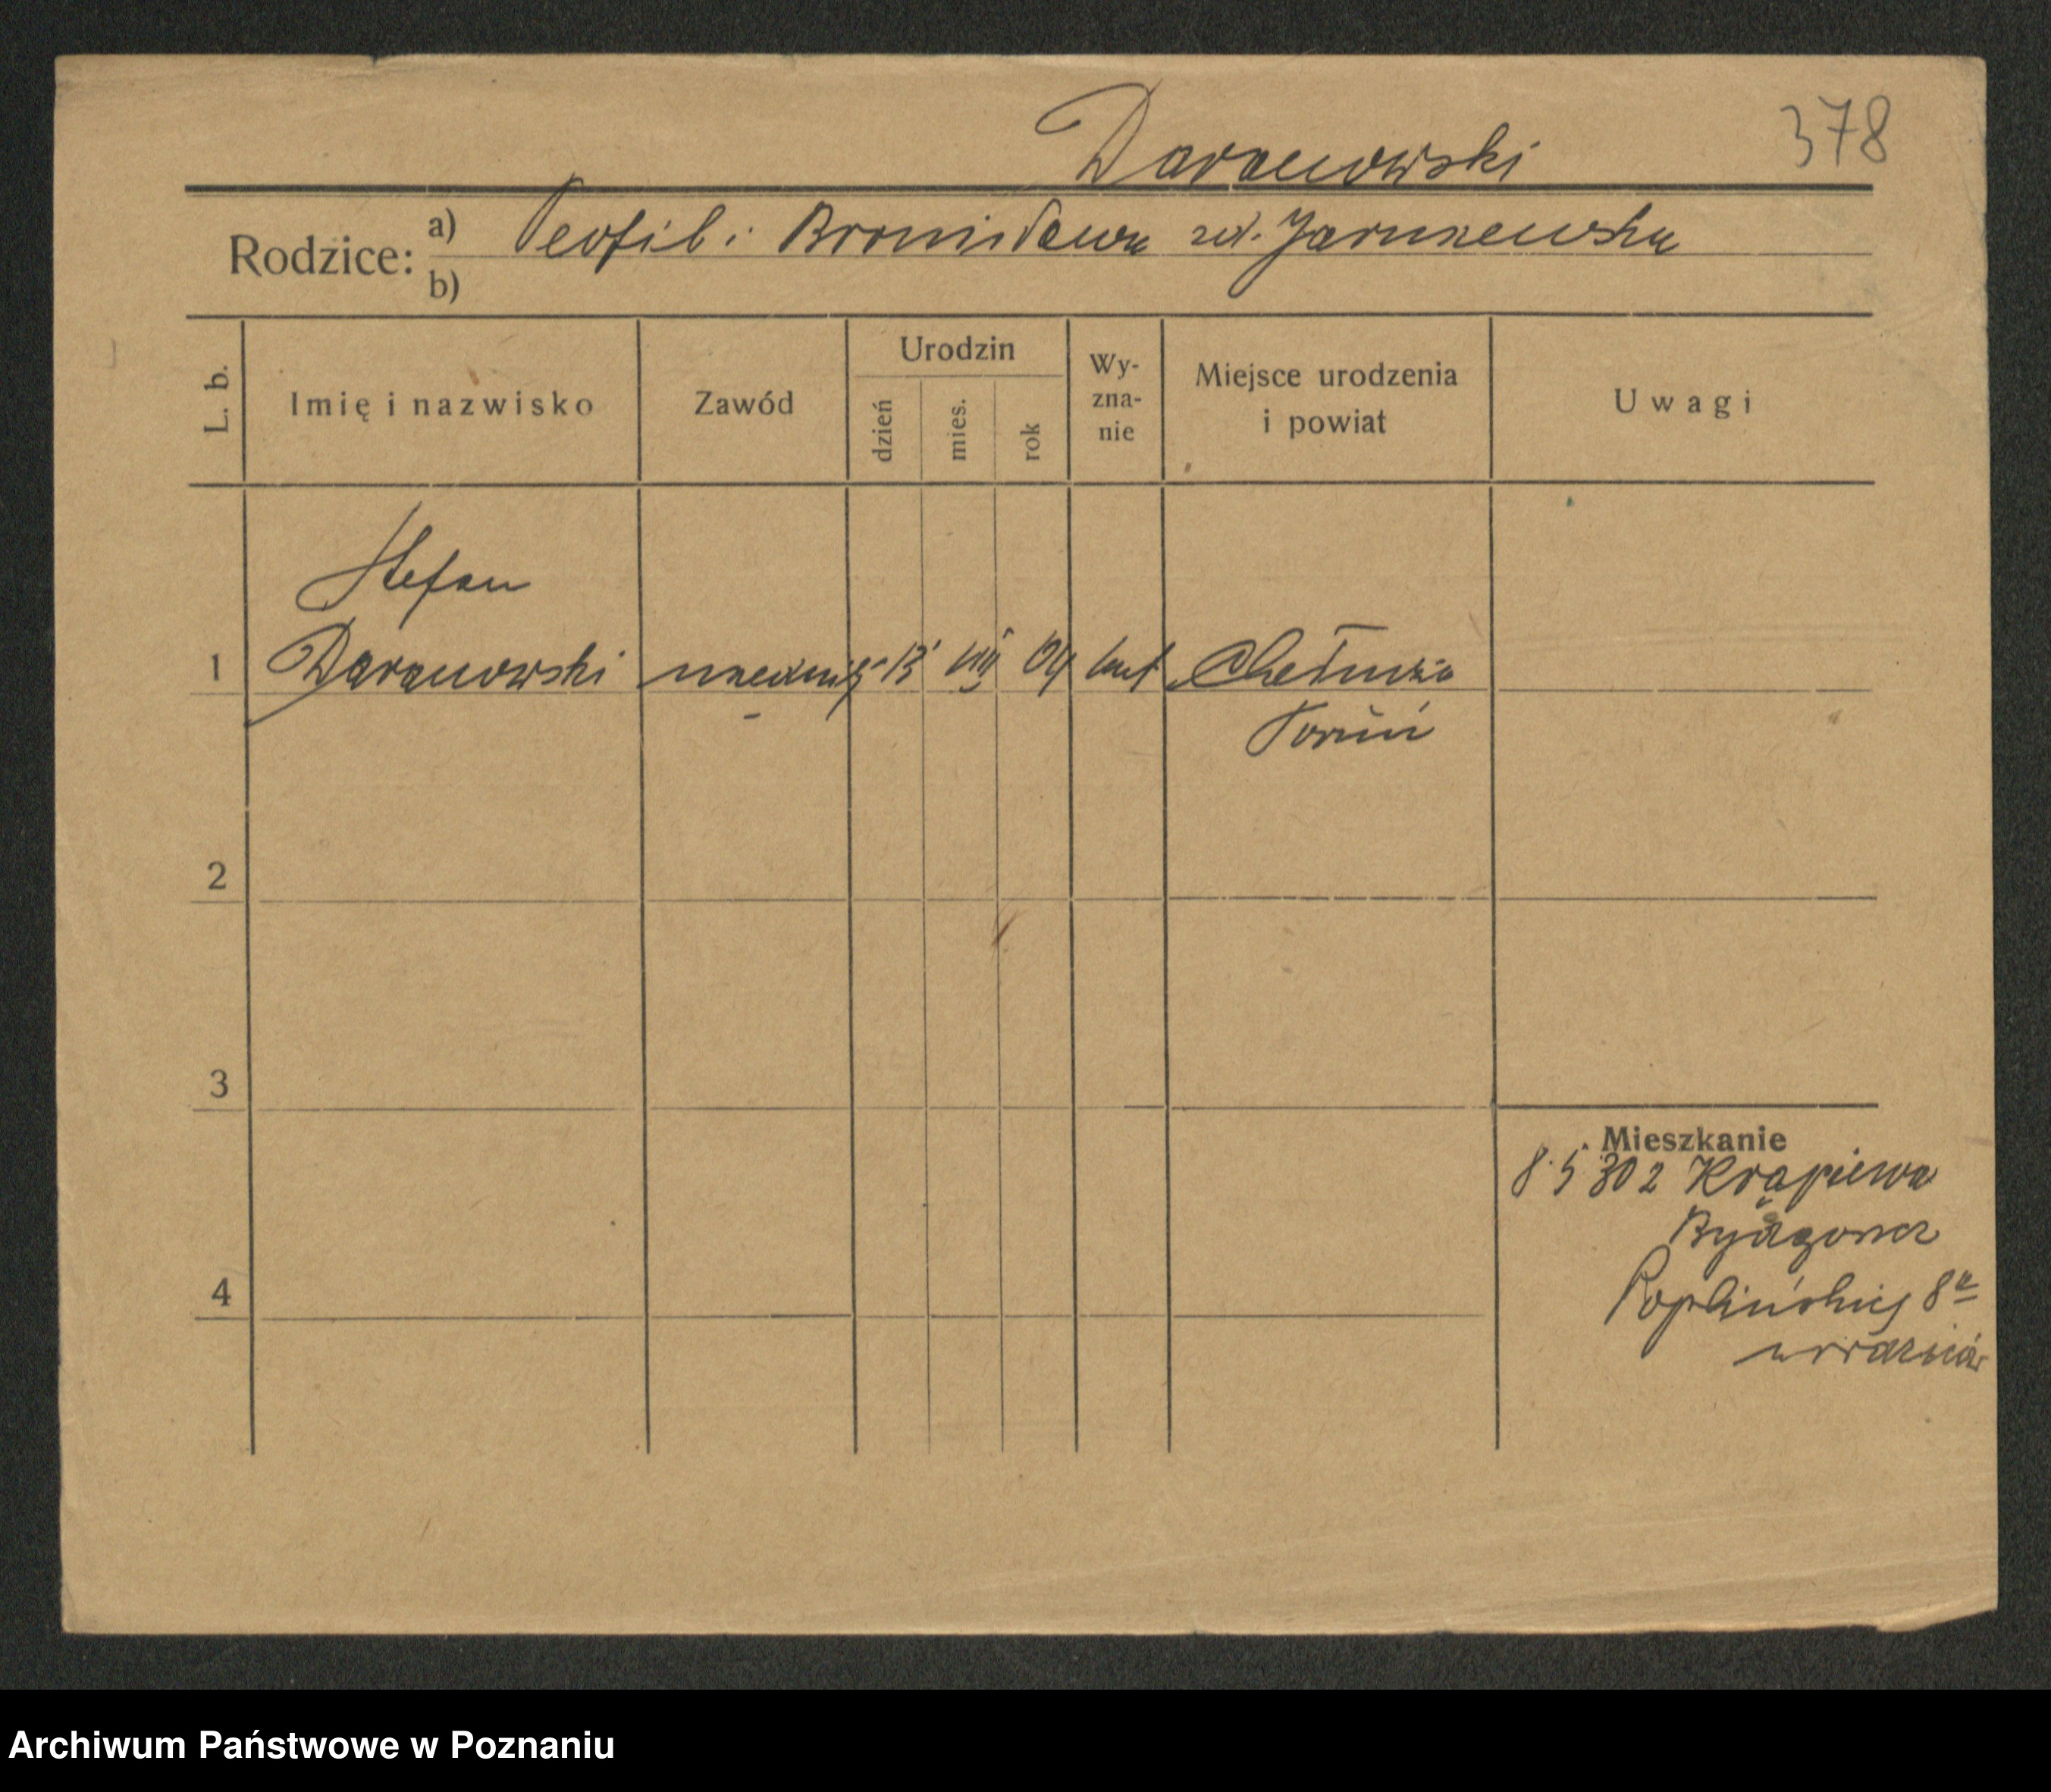 Daranowski
378
Rodzice: a) Teofil i Bronisława zd. Jaruszewska
b)
L. b.
Imię i nazwisko
Zawód
Urodzin
dzień
mies.
rok
Wy-
zna-
nie
Miejsce urodzenia
i powiat
Uwagi
Stefan
1 Daranowski 13 VIII 04 kat Chełmża
Toruń
2
3
Mieszkanie
8.5.30 2 Krąpiewa
Bydgoszcz
4
Poplińskiej 8a
Archiwum Państwowe w Poznaniu